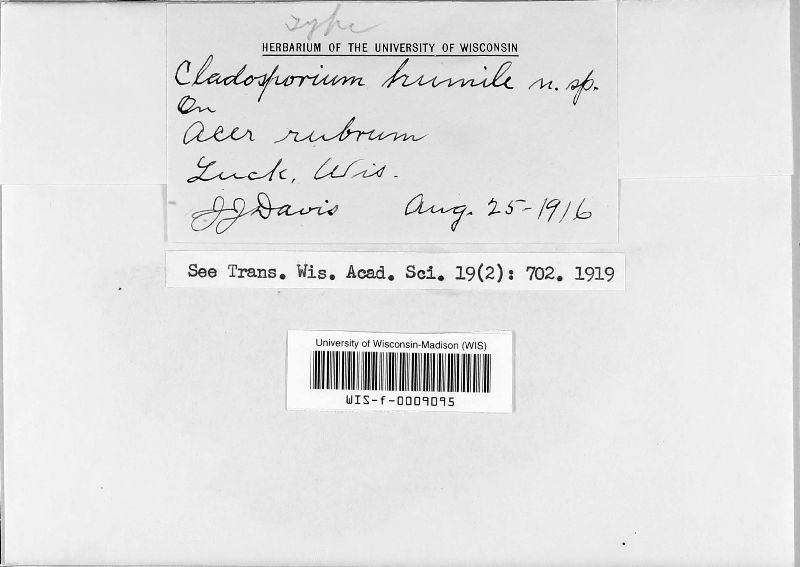 Type
HERBARIUM OF THE UNIVERSITY OF WISCONSIN
Cladosporium humile n. sp.
On
Acer rubrum
Luck, Wis.
JJ Davis Aug. 25-1916
See Trans. Wis. Acad. Sci. 19(2): 702. 1919
University of Wisconsin-Madison (WIS)
WIS-f-0009095